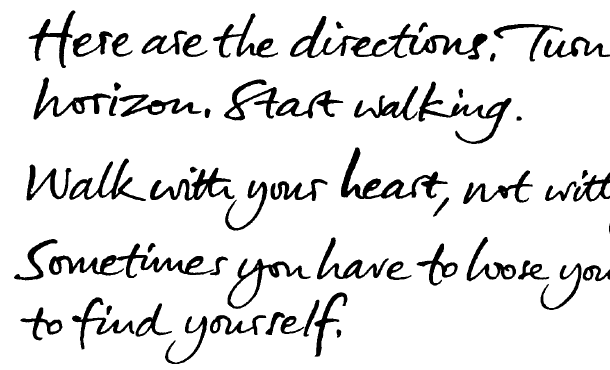 Here are the directions. Turn
horizon. Start walking.
Walk with your heart, not with
Sometimes you have to loose you
to find yourself.